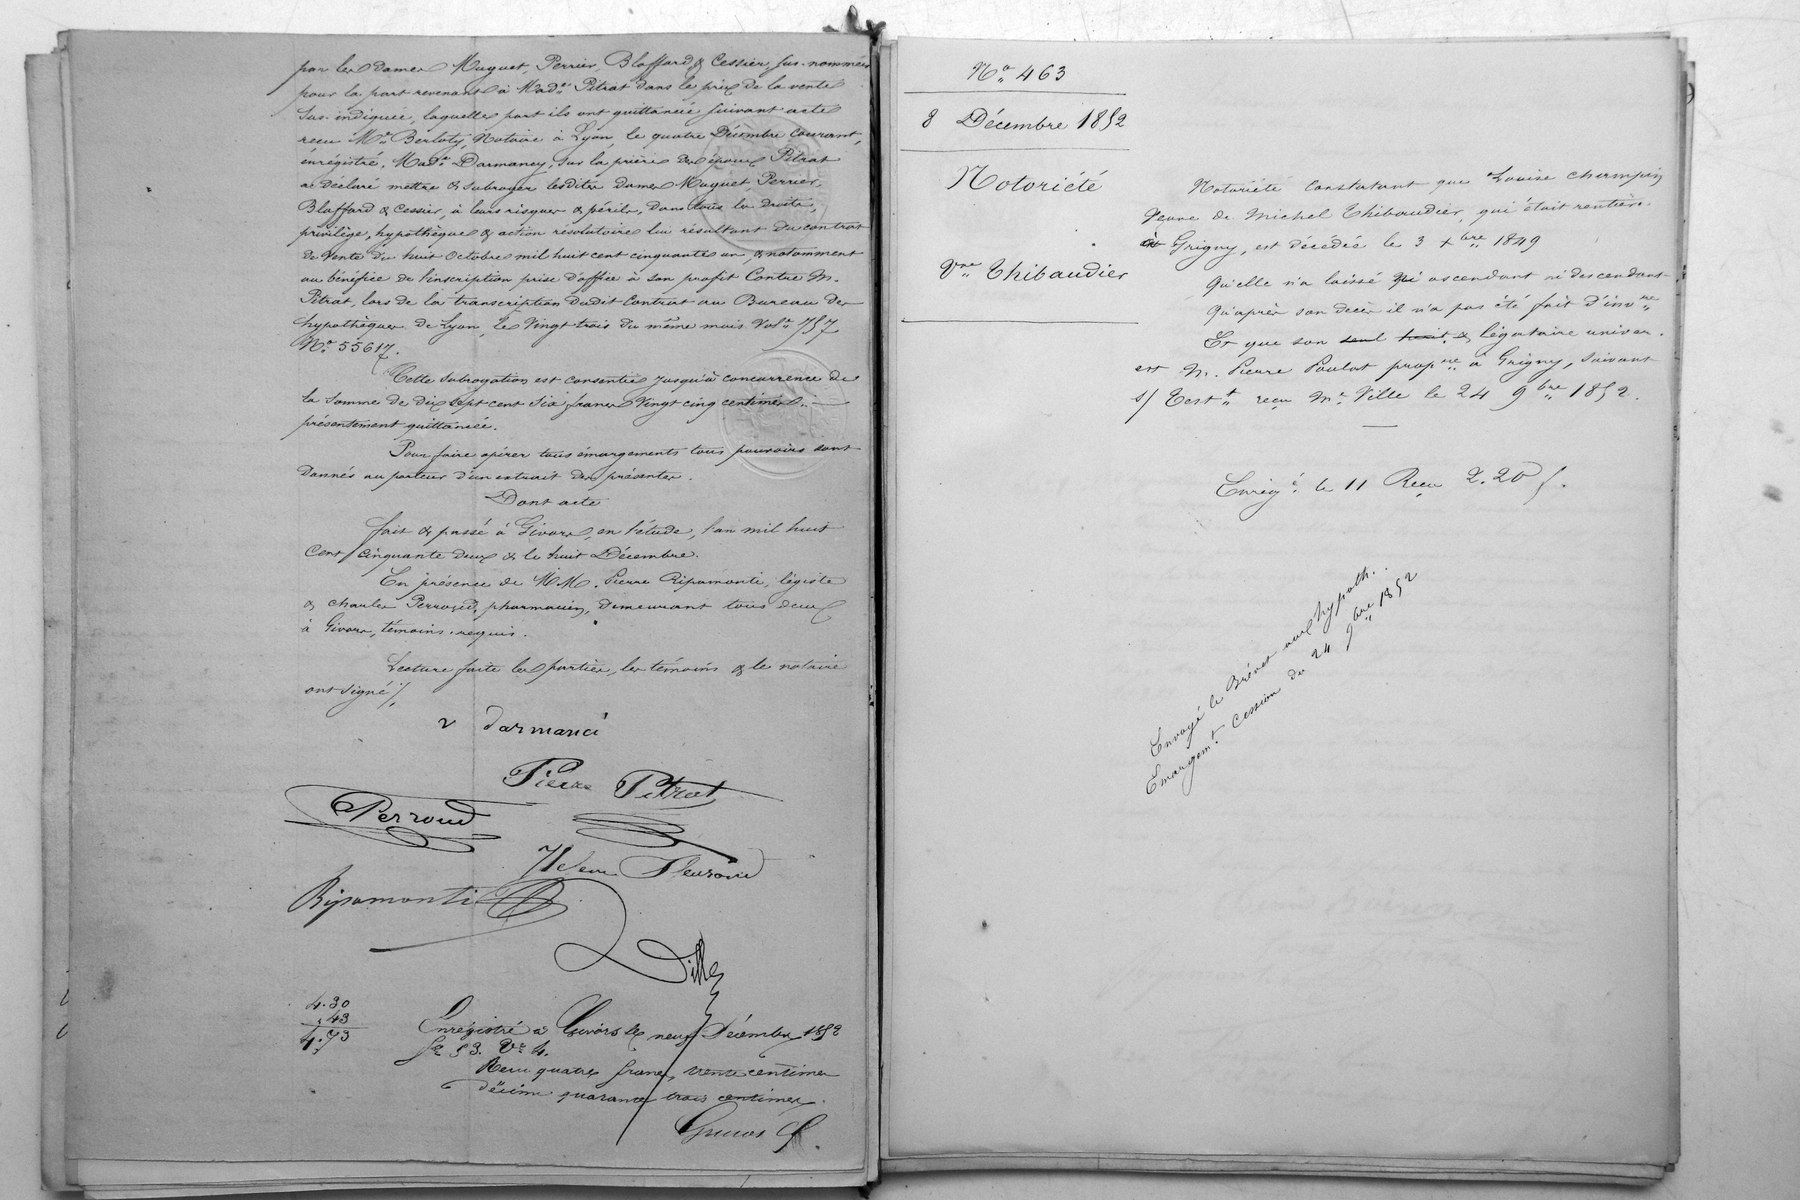 par les dames Muguet, Perrier, Bloffard & Cessier, sus-nommées
pour la part revenant à Made. Pitrat dans le prix de la vente
sus-indiquée, laquelle part ils ont quittancée suivant acte
reçu Me. Berloty, Notaire à Lyon, le quatre Décembre courant,
énrégistré, Made. Darmancy, sur la prière des époux Pitrat
a déclaré mettre & subroger lesdites dames Muguet, Perrier,
Bloffard & Cessier, à leurs risques & périls, dans tous les droits,
privilège, hypothèque & action résolutoire lui résultant du contrat
de vente du huit Octobre mil huit cent cinquante un, & notamment
au bénéfice de l'inscription prise d'office à son profit Contre M.
Pitrat, lors de la transcription dudit Contrat au Bureau des
hypothèques de Lyon, le Vingt trois du même mois Vole. 757
No. 55617.
Cette subrogation est consentie jusqu'à concurrence de
la somme de dix sept cent six francs Vingt cinq centimes
présentement quittancée.
Pour faire opérer tous émargements tous pouvoirs sont
donnés au porteur d'un extrait des présentes.
Dont acte
fait & passé à Givors, en l'étude, l'an mil huit
cent cinquante deux & le huit Décembre.
En présence de MM. Pierre Ripamonti, légiste
& charles Perroud, pharmacien, demeurant tous deux
à Givors, témoins requis.
Lecture faite les parties, les témoins & le notaire
ont signé ./.
v darmanci
Pierre Pitrat
Perroud
Ripamonti
Ville
4.30
43
4.73
Enrégistré à Givors le neuf Décembre 1852
fo. 53. Vo. 4.
Reçu quatre francs, trente centimes
décime quarante trois centimes.
No. 463
8 Décembre 1852
Notoriété
Vve. Thibaudier
Notoriété constatant que Louise champin
Veuve de Michel Thibaudier, qui était rentière
à Grigny, est décédée le 3 xbre 1849
Qu'elle n'a laissé ni ascendant ni descendant
Qu'après son décès il n'a pas été fait d'invre.
Et que son seul légataire univer.
est M. Pierre Poulat propre. à Grigny, suivant
s/ Testt. reçu Me. Ville le 24 9bre 1852.
Enregé. le 11 Reçu 2.20 f.
Envoyé le Brévet aux hypoth.
Emargemt. Cession du 24 9bre 1852